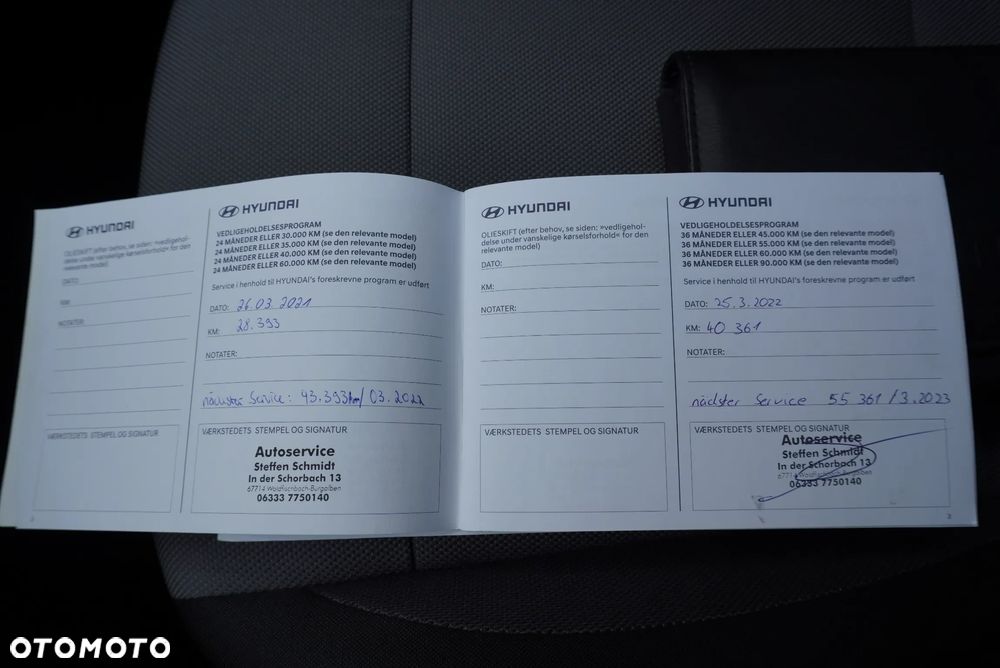 HYUNDAI
OLIESKIFT (efter behov, se siden: »vedligehol-
delse under vanskelige kørselsforhold« for den
relevante model)
DATO:
KM:
NOTATER:
HYUNDAI
VEDLIGEHOLDELSESPROGRAM
24 MÅNEDER ELLER 30.000 KM (se den relevante model)
24 MÅNEDER ELLER 35.000 KM (se den relevante model)
24 MÅNEDER ELLER 40.000 KM (se den relevante model)
24 MÅNEDER ELLER 60.000 KM (se den relevante model)
Service i henhold til HYUNDAI's foreskrevne program er udført
DATO: 26.03.2021
KM: 28.393
NOTATER:
nächster Service: 43.393km/ 03.2022
VÆRKSTEDETS STEMPEL OG SIGNATUR
VÆRKSTEDETS STEMPEL OG SIGNATUR
Autoservice
Steffen Schmidt
In der Schorbach 13
67714 Waldfischbach-Burgalben
06333 7750140
HYUNDAI
OLIESKIFT (efter behov, se siden: »vedligehol-
delse under vanskelige kørselsforhold« for den
relevante model)
DATO:
KM:
NOTATER:
VÆRKSTEDETS STEMPEL OG SIGNATUR
HYUNDAI
VEDLIGEHOLDELSESPROGRAM
36 MÅNEDER ELLER 45.000 KM (se den relevante model)
36 MÅNEDER ELLER 55.000 KM (se den relevante model)
36 MÅNEDER ELLER 60.000 KM (se den relevante model)
36 MÅNEDER ELLER 90.000 KM (se den relevante model)
Service i henhold til HYUNDAI's foreskrevne program er udført
DATO: 25.3.2022
KM: 40 361
NOTATER:
nächster Service 55 361 / 3.2023
VÆRKSTEDETS STEMPEL OG SIGNATUR
Autoservice
Steffen Schmidt
In der Schorbach 13
67714 Waldfischbach-Burgalben
06333 7750140
2
3
OTOMOTO